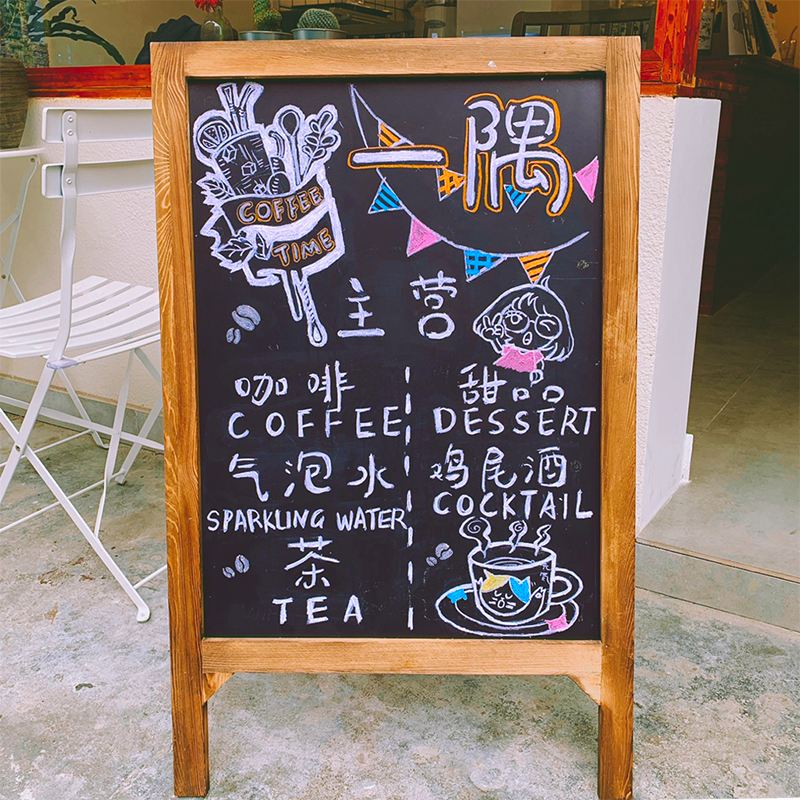 COFFEE
TIME
一隅
主营
咖啡
COFFEE
气泡水
SPARKLING WATER
茶
TEA
甜品
DESSERT
鸡尾酒
COCKTAIL